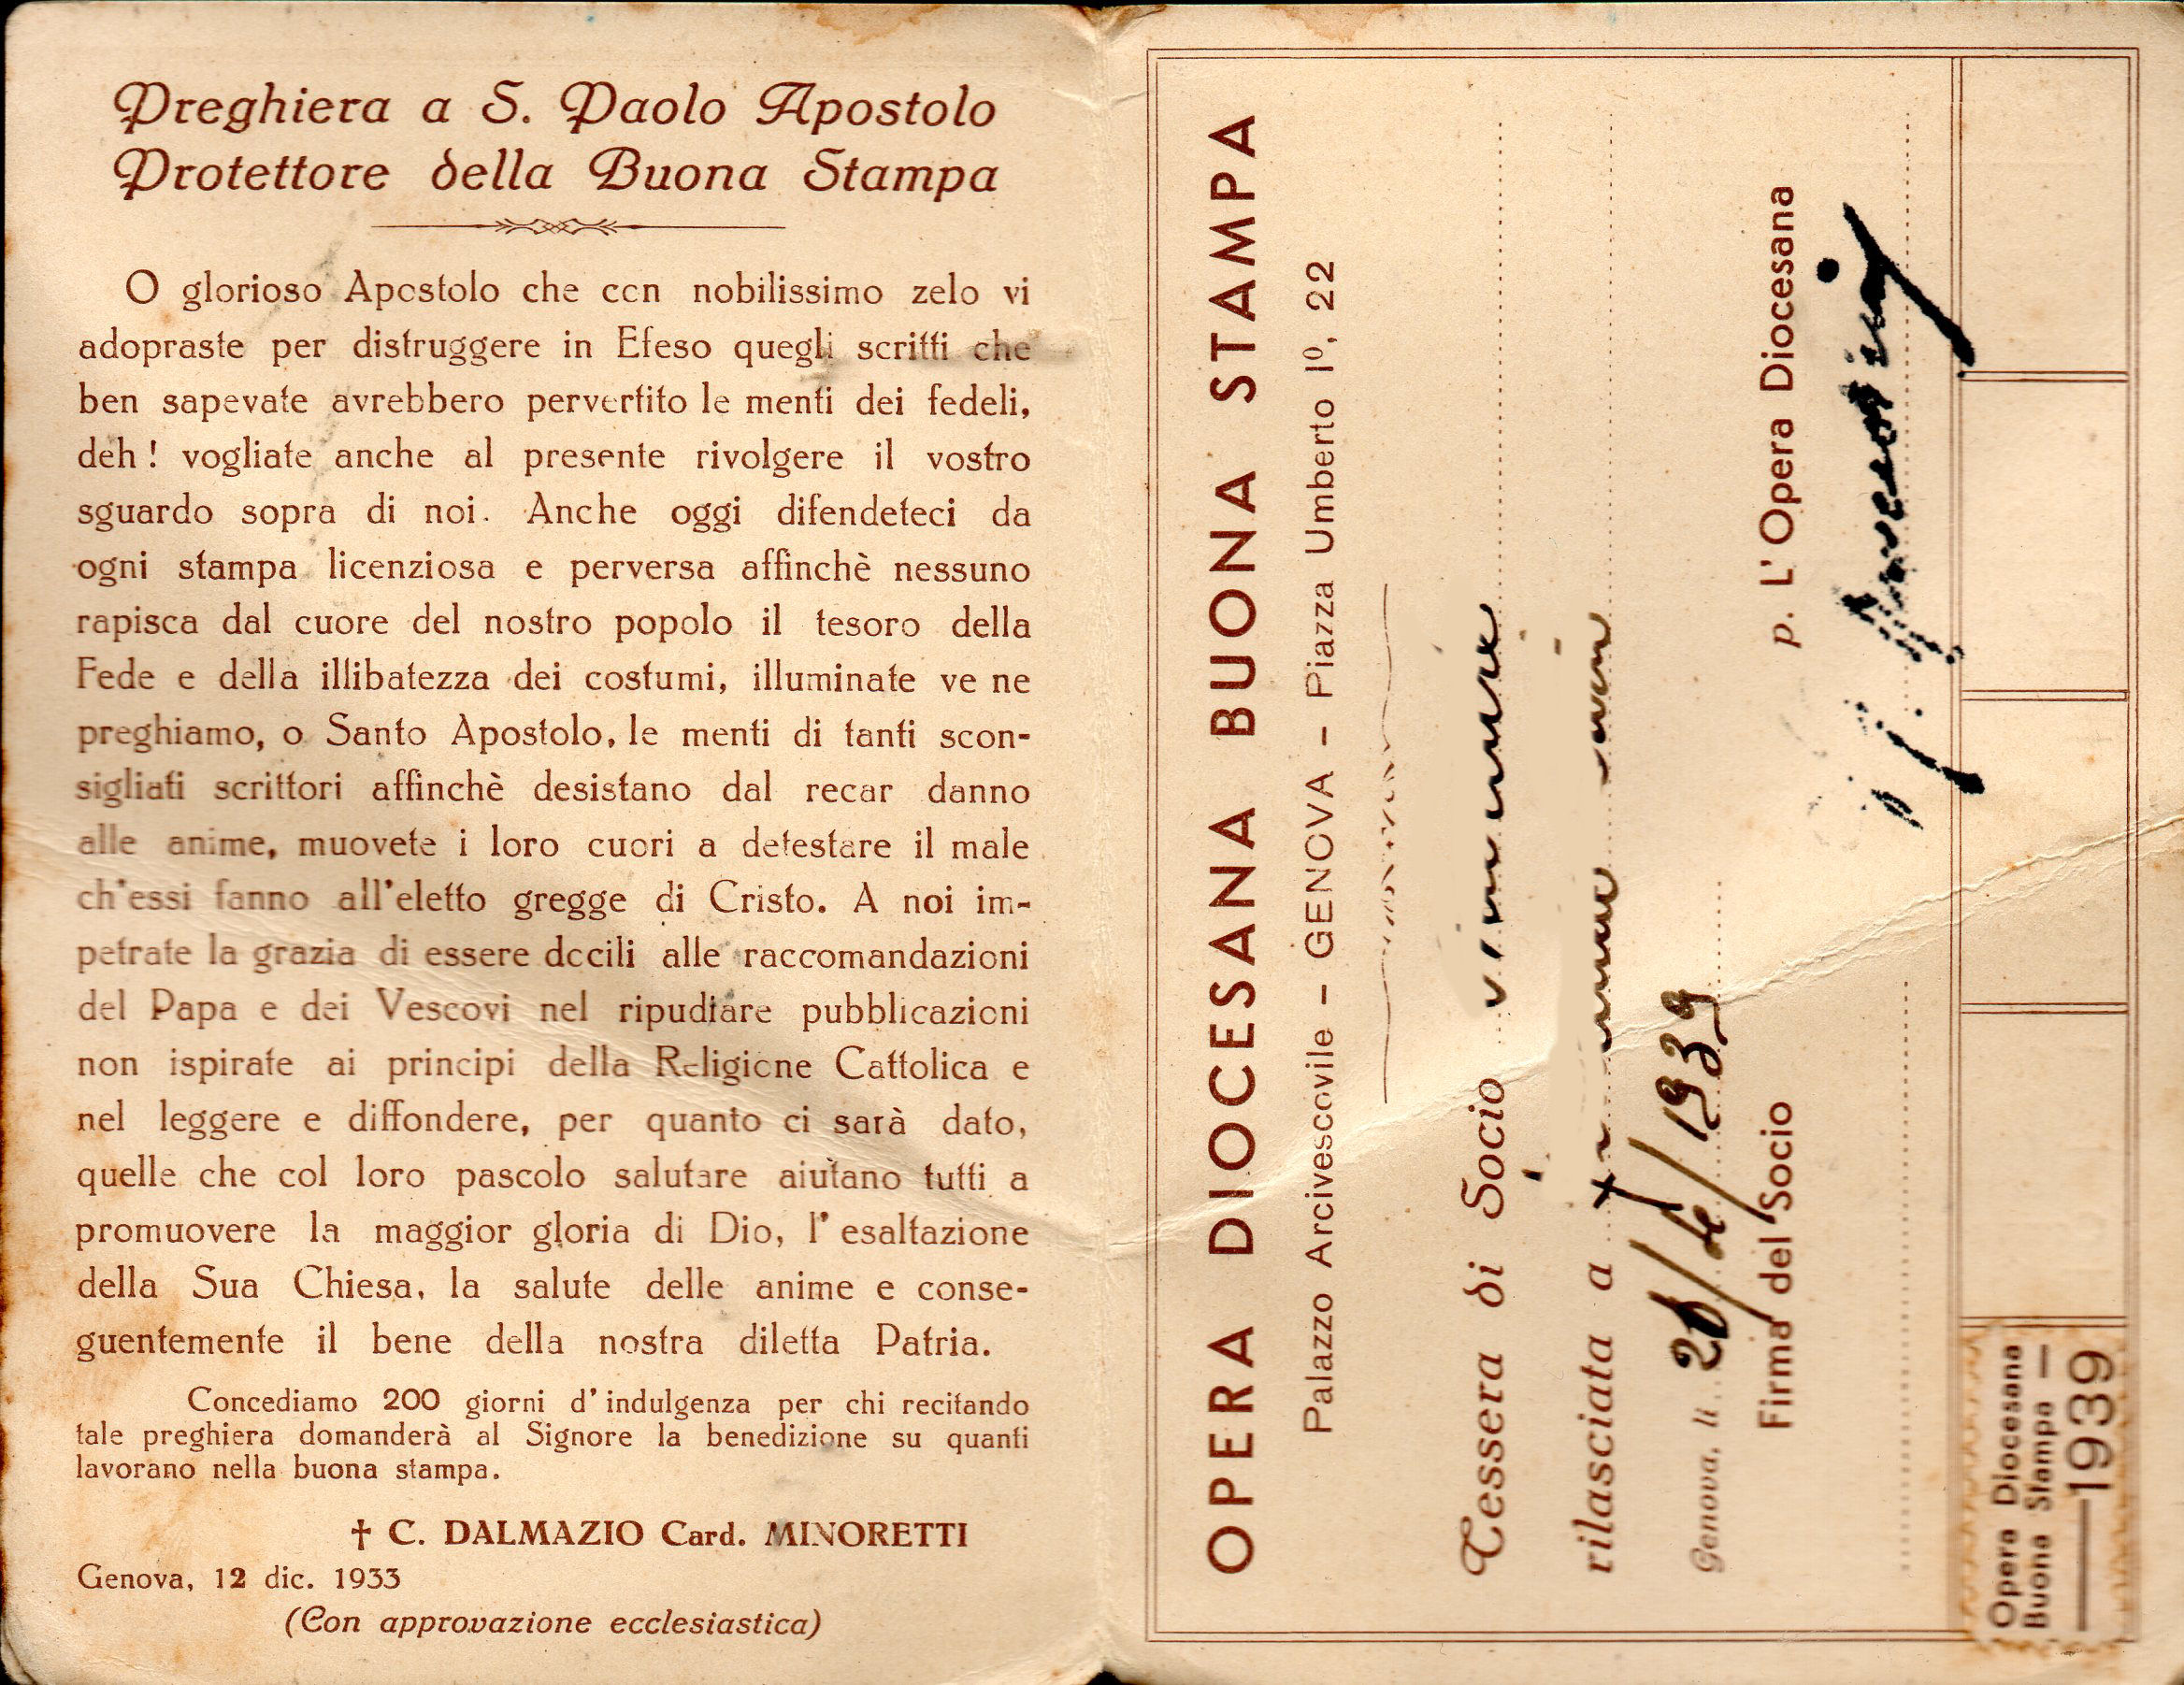 Preghiera a S. Paolo Apostolo
Protettore della Buona Stampa
O glorioso Apostolo che con nobilissimo zelo vi
adopraste per distruggere in Efeso quegli scritti che
ben sapevate avrebbero pervertito le menti dei fedeli,
deh ! vogliate anche al presente rivolgere il vostro
sguardo sopra di noi. Anche oggi difendeteci da
ogni stampa licenziosa e perversa affinchè nessuno
rapisca dal cuore del nostro popolo il tesoro della
Fede e della illibatezza dei costumi, illuminate ve ne
preghiamo, o Santo Apostolo, le menti di tanti scon-
sigliati scrittori affinchè desistano dal recar danno
alle anime, muovete i loro cuori a detestare il male
ch'essi fanno all'eletto gregge di Cristo. A noi im-
petrate la grazia di essere docili alle raccomandazioni
del Papa e dei Vescovi nel ripudiare pubblicazioni
non ispirate ai principi della Religione Cattolica e
nel leggere e diffondere, per quanto ci sarà dato,
quelle che col loro pascolo salutare aiutano tutti a
promuovere la maggior gloria di Dio, l'esaltazione
della Sua Chiesa, la salute delle anime e conse-
guentemente il bene della nostra diletta Patria.
Concediamo 200 giorni d'indulgenza per chi recitando
tale preghiera domanderà al Signore la benedizione su quanti
lavorano nella buona stampa.
† C. DALMAZIO Card. MINORETTI
Genova, 12 dic. 1933
(Con approvazione ecclesiastica)
OPERA DIOCESANA BUONA STAMPA
Palazzo Arcivescovile - GENOVA - Piazza Umberto Iº, 22
Tessera di Socio
rilasciata a
Genova, li 26/4/1939
Firma del Socio
p. L'Opera Diocesana
Opera Diocesana
Buona Stampa —
—1939